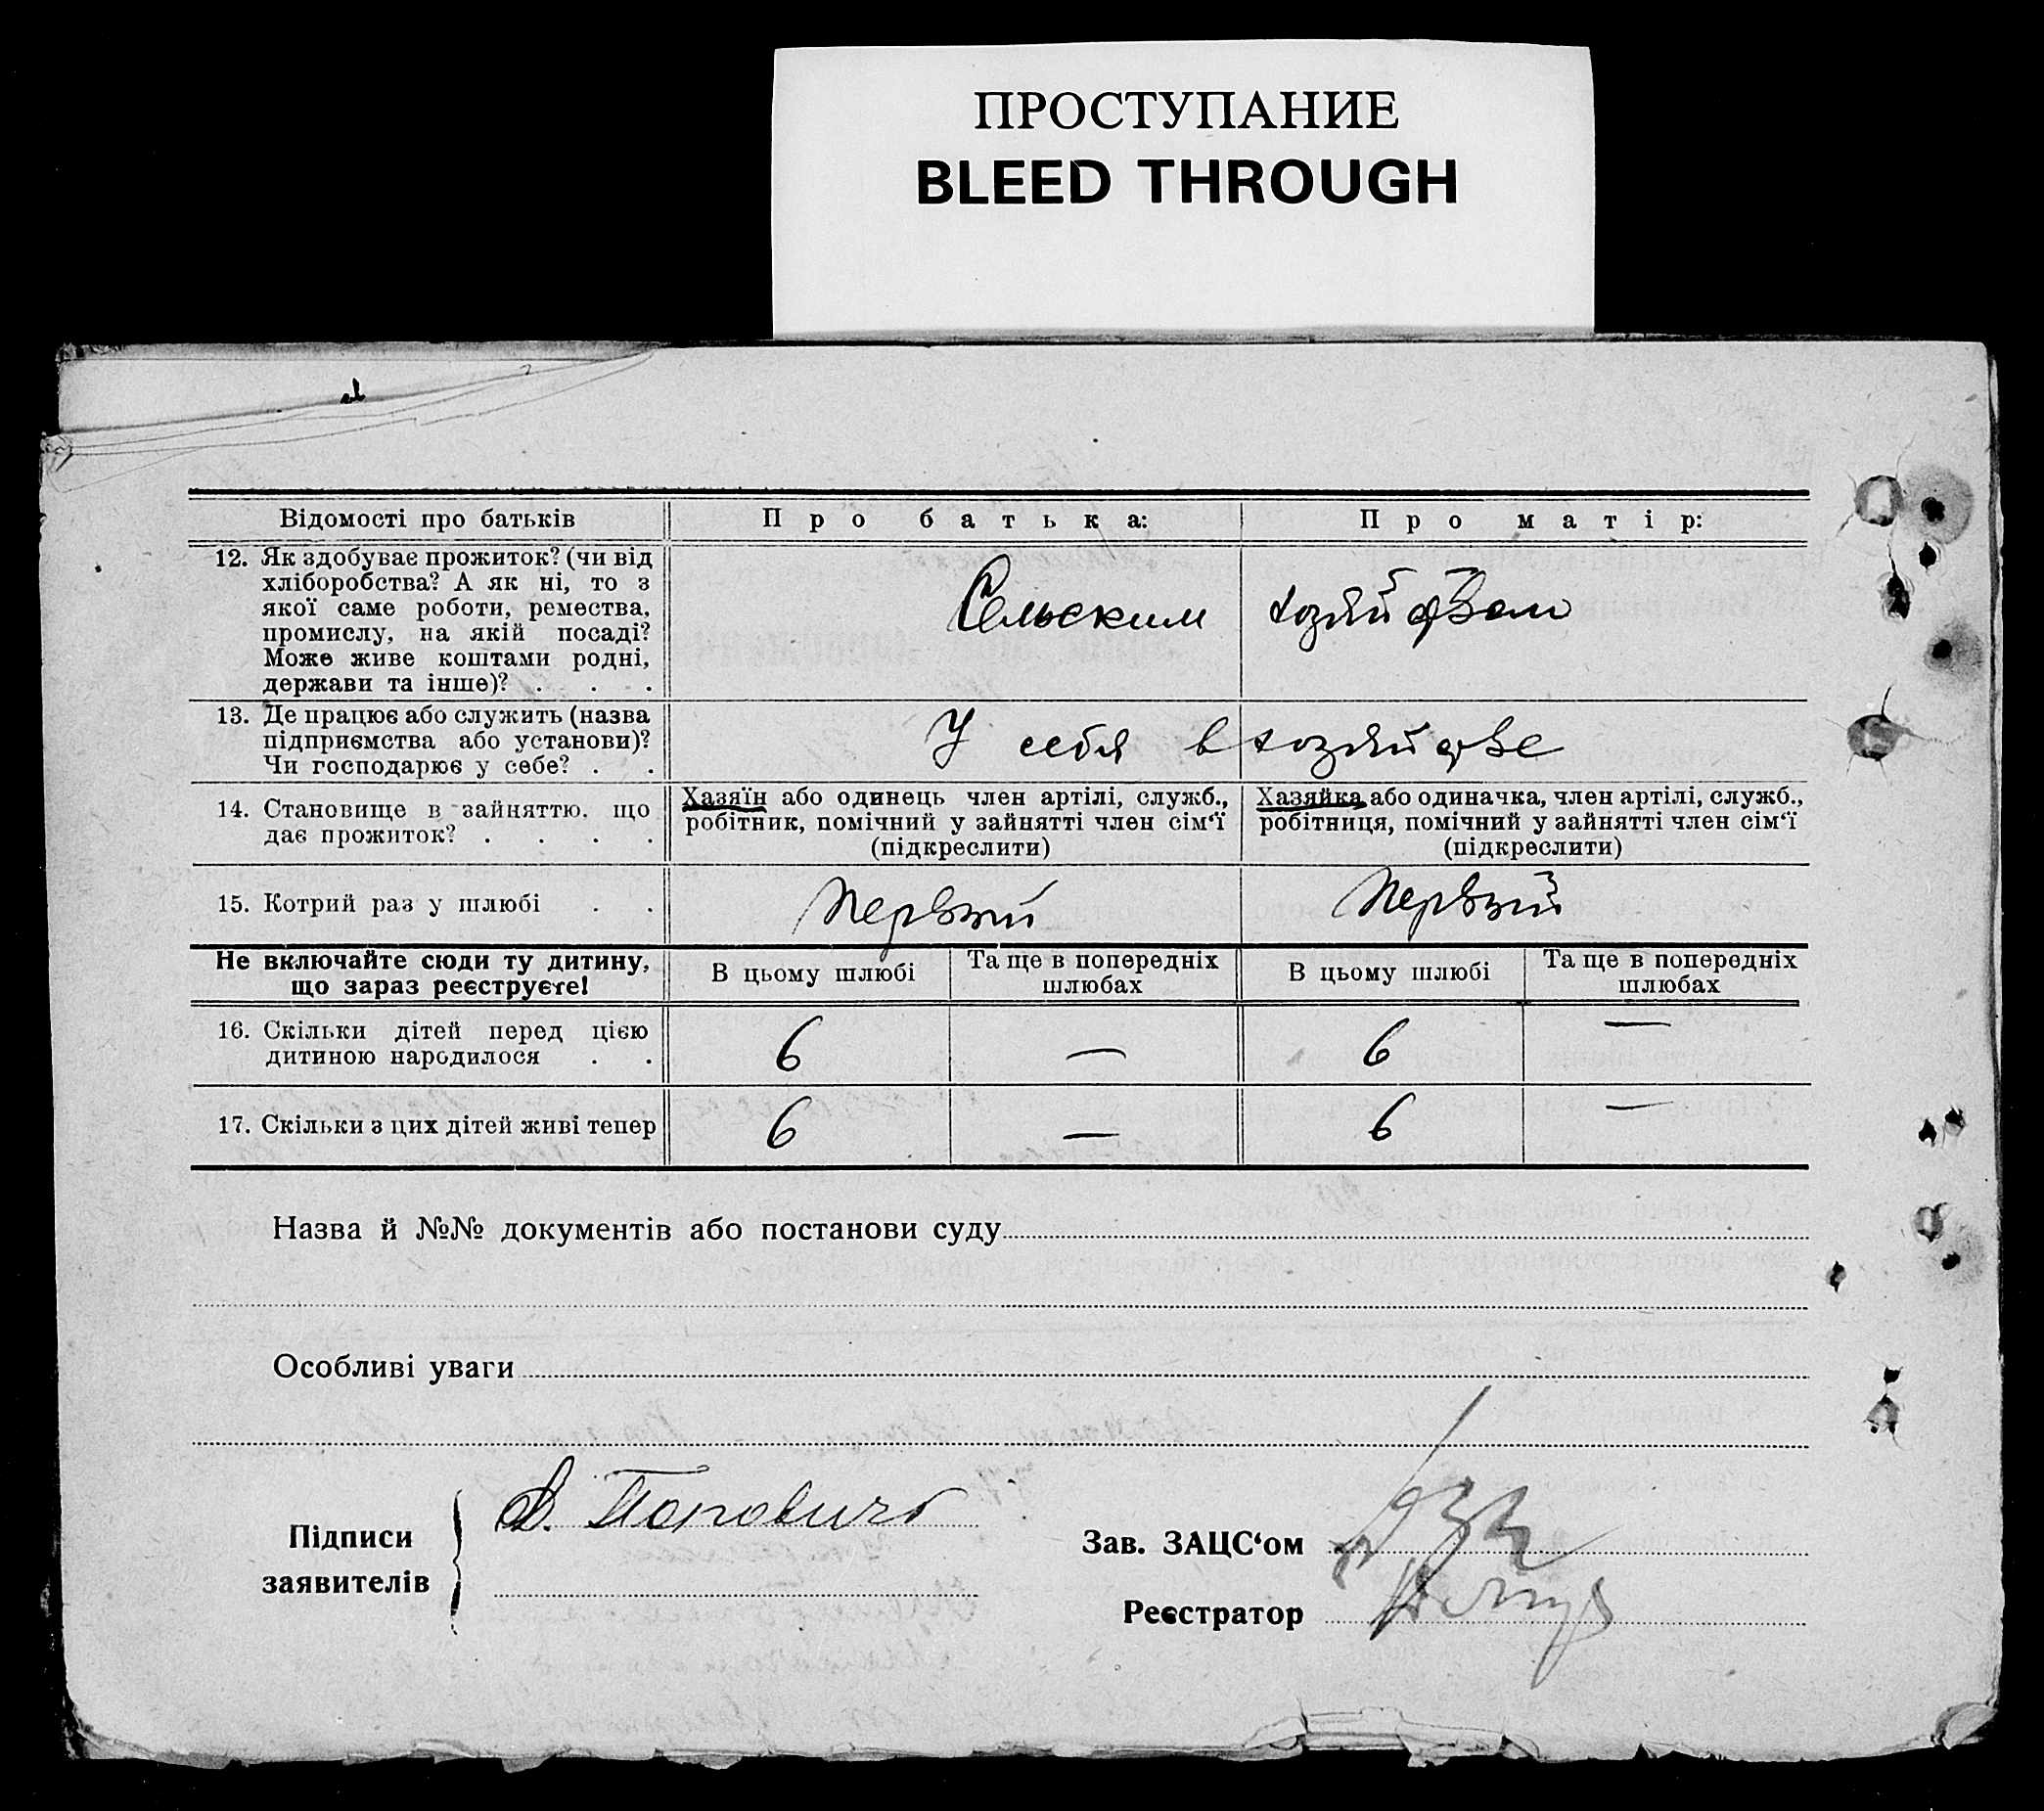 ПРОСТУПАНИЕ
BLEED THROUGH
Відомості про батьків
Про батька:
Про матір:
12. Як здобуває прожиток? (чи від
хліборобства? А як ні, то з
якої саме роботи, ремества,
промислу, на якій посаді?
Може живе коштами родні,
держави та інше)? . . .
Сельским хозяйством
13. Де працює або служить (назва
підприємства або установи)?
Чи господарює у себе? . .
У себя в хозяйстве
14. Становище в зайняттю, що
дає прожиток? . . . .
Хазяїн або одинець член артілі, служб.,
робітник, помічний у зайнятті член сім‘ї
(підкреслити)
Хазяйка або одиначка, член артілі, служб.,
робітниця, помічний у зайнятті член сім‘ї
(підкреслити)
15. Котрий раз у шлюбі . .
Первый
Первый
Не включайте сюди ту дитину,
що зараз реєструєте!
В цьому шлюбі
Та ще в попередніх
шлюбах
В цьому шлюбі
Та ще в попередніх
шлюбах
16. Скільки дітей перед цією
дитиною народилося . .
6 — 6 —
17. Скільки з цих дітей живі тепер
6 — 6 —
Назва й №№ документів або постанови суду
Особливі уваги
Підписи
заявителів
Д. Попович
Зав. ЗАЦС‘ом
Реєстратор